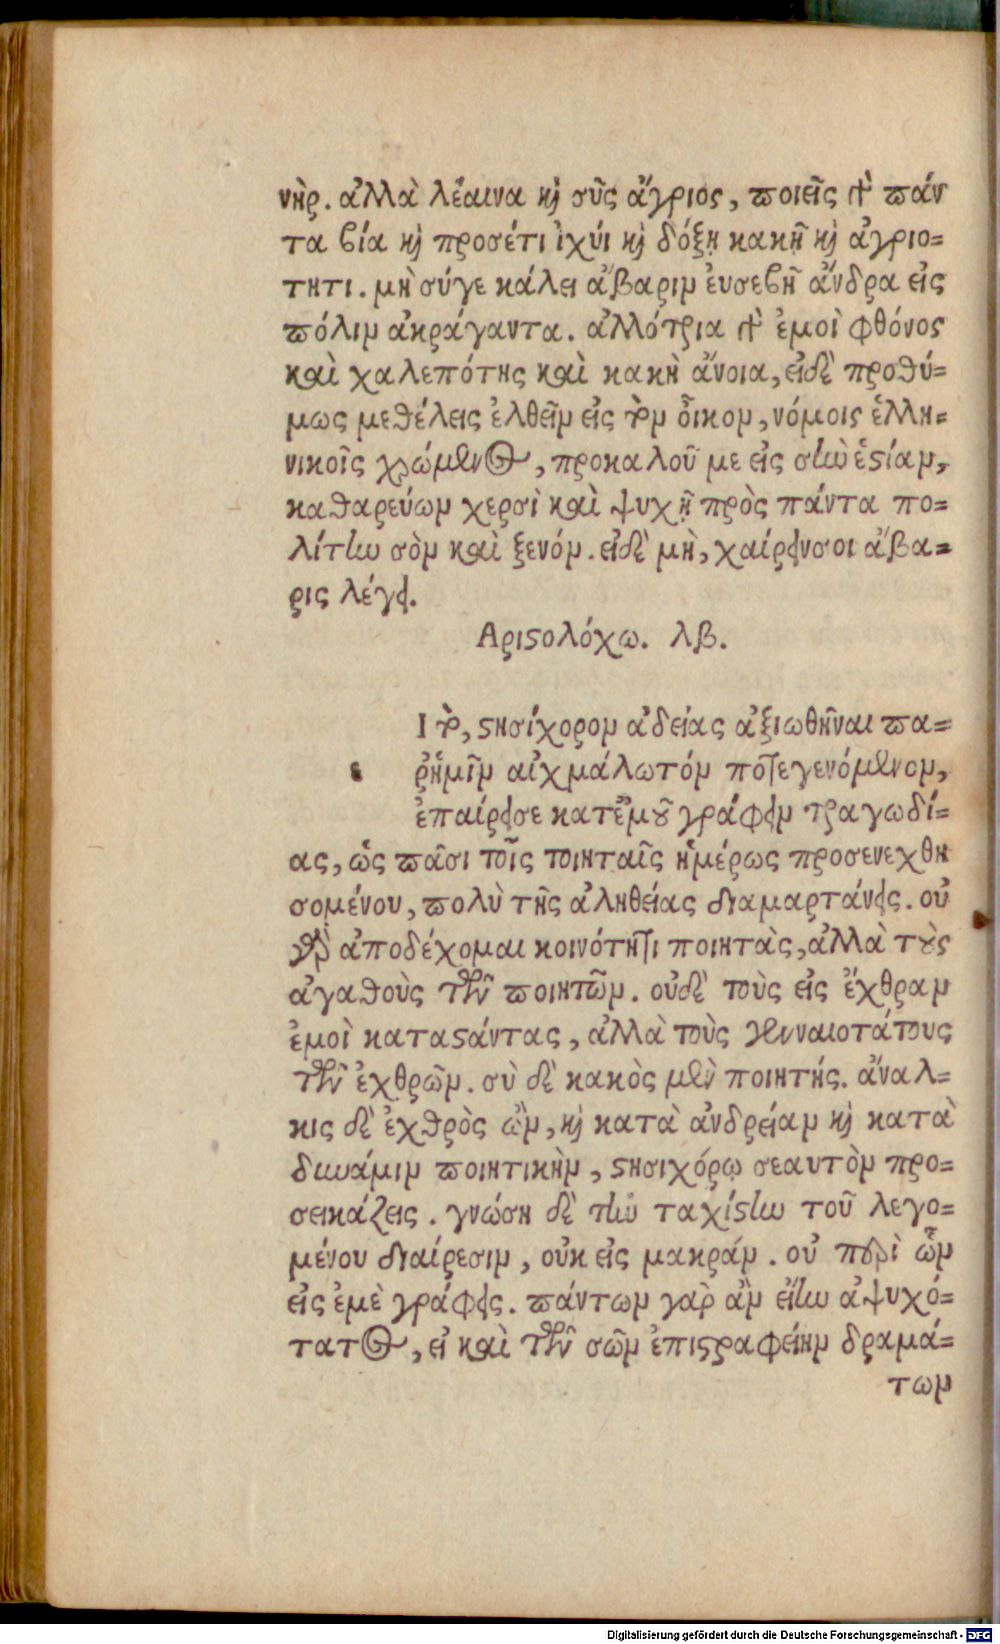 νὴρ. ἀλλὰ λέαινα καὶ σῦς ἄγριος, ποιεῖς δὲ πάν
τα βία καὶ προσέτι ἰχύι καὶ δόξῃ κακῇ καὶ ἀγριο=
τητι. μὴ σύγε κάλει ἄβαριν ἐυσεβῆ ἄνδρα εἰς
πόλιν ἀκράγαντα. ἀλλότρια δὲ ἐμοὶ φθόνος
καὶ χαλεπότης καὶ κακὴ ἄνοια, εἰδὲ προθύ=
μως μεθέλεις ἐλθεῖν εἰς τὸν οἶκον, νόμοις ἑλλη=
νικοῖς χρώμενος, προκαλοῦ με εἰς σὴν ἑστίαν,
καθαρεύων χερσὶ καὶ ψυχῇ πρὸς πάντα πο=
λίτην σὸν καὶ ξενόν. εἰδὲ μὴ, χαίρεινσοι ἄβα=
ρις λέγει.
Αριστολόχω. λβ.
Ι τὸ, στησίχορον ἀδείας ἀξιωθῆναι πα=
ε ῥἡμῖν αἰχμάλωτόν ποτεγενόμενον,
ἐπαίρεισε κατἐμοῦ γράφειν τραγωδί=
ας, ὡς πᾶσι τοῖς ποιηταῖς ἡμέρως προσενεχθη
σομένου, πολὺ τῆς ἀληθείας διαμαρτάνεις. οὐ
γὰρ ἀποδέχομαι κοινότητι ποιητὰς, ἀλλὰ τοὺς
ἀγαθοὺς τῶν ποιητῶν. οὐδὲ τοὺς εἰς ἔχθραν
ἐμοὶ καταστάντας, ἀλλὰ τοὺς γενναιοτάτους
τῶν ἐχθρῶν. σὺ δὲ κακὸς μὲν ποιητής. ἄναλ=
κις δὲ ἐχθρὸς ὢν, καὶ κατὰ ἀνδρείαν καὶ κατὰ
δυνάμιν ποιητικὴν, στησιχόρῳ σεαυτὸν προ=
σεικάζεις. γνώσῃ δὲ τὴν ταχίστην τοῦ λεγο=
μένου διαίρεσιν, οὐκ εἰς μακράν. οὐ περὶ ὧν
εἰς ἐμὲ γράφεις. πάντων γὰρ ἂν εἴην ἀψυχό=
τατος, εἰ καὶ τῶν σῶν ἐπιστραφείην δραμά=
των
Digitalisierung gefördert durch die Deutsche Forschungsgemeinschaft - DFG